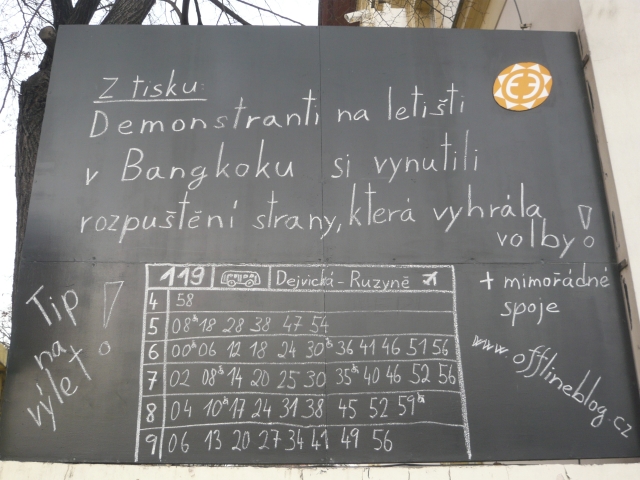 Z tisku:
Demonstranti na letišti
v Bangkoku si vynutili
rozpuštění strany, která vyhrála
volby!
Tip
na
výlet!
119 Dejvická - Ruzyně
4 58
5 08 18 28 38 47 54
6 00 06 12 18 24 30 36 41 46 51 56
7 02 08 14 20 25 30 35 40 46 52 56
8 04 10 17 24 31 38 45 52 59
9 06 13 20 27 34 41 49 56
+ mimořádné
spoje
www.offlineblog.cz